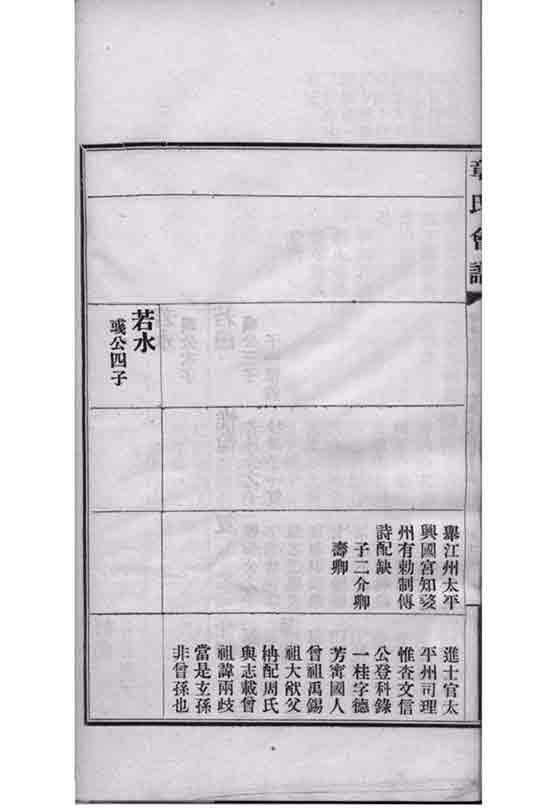 章氏會譜
舉江州太平
興國宮知婺
州有勅制傳
詩配缺
子二介卿
壽卿
進士官太
平州司理
惟查文信
公登科錄
一桂字德
芳甯國人
曾祖禹錫
祖大猷父
枬配周氏
與志載曾
祖諱兩歧
當是玄孫
非曾孫也
若水
彧公四子